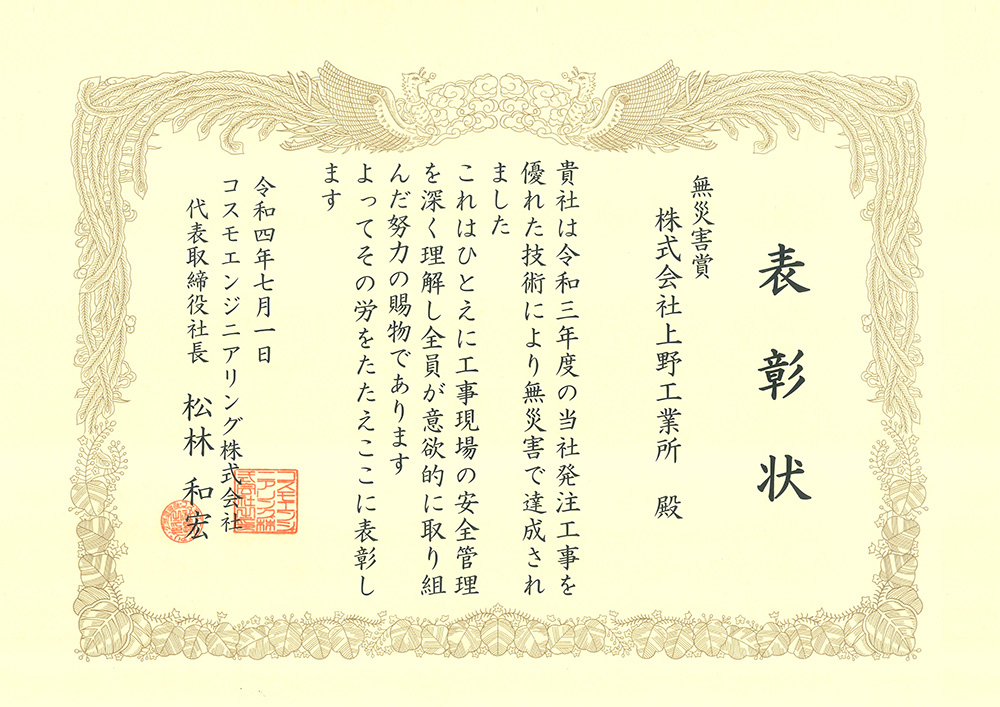 表彰状
無災害賞
株式会社上野工業所 殿
貴社は令和三年度の当社発注工事を
優れた技術により無災害で達成され
ました
これはひとえに工事現場の安全管理
を深く理解し全員が意欲的に取り組
んだ努力の賜物であります
よってその労をたたえここに表彰し
ます
令和四年七月一日
コスモエンジニアリング株式会社
代表取締役社長 松林 和宏